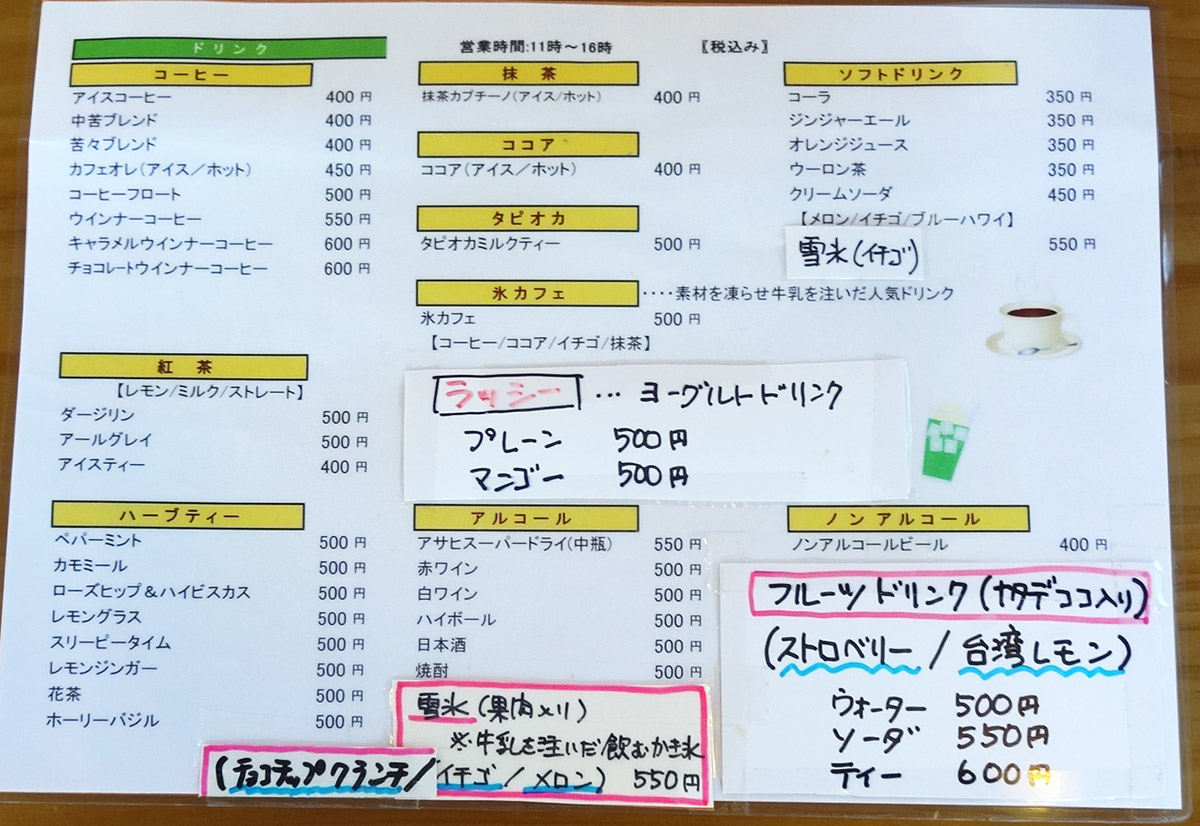 ドリンク
営業時間:11時～16時
〖税込み〗
コーヒー
アイスコーヒー 400 円
中苦ブレンド 400 円
苦々ブレンド 400 円
カフェオレ(アイス／ホット) 450 円
コーヒーフロート 500 円
ウインナーコーヒー 550 円
キャラメルウインナーコーヒー 600 円
チョコレートウインナーコーヒー 600 円
紅 茶
【レモン/ミルク/ストレート】
ダージリン 500 円
アールグレイ 500 円
アイスティー 400 円
ハーブティー
ペパーミント 500 円
カモミール 500 円
ローズヒップ＆ハイビスカス 500 円
レモングラス 500 円
スリーピータイム 500 円
レモンジンガー 500 円
花茶 500 円
ホーリーバジル 500 円
抹 茶
抹茶カプチーノ(アイス/ホット) 400 円
ココア
ココア(アイス／ホット) 400 円
タピオカ
タピオカミルクティー 500 円
氷カフェ ････素材を凍らせ牛乳を注いだ人気ドリンク
氷カフェ 500 円
【コーヒー/ココア/イチゴ/抹茶】
ラッシー … ヨーグルトドリンク
プレーン 500円
マンゴー 500円
アルコール
アサヒスーパードライ(中瓶) 550 円
赤ワイン 500 円
白ワイン 500 円
ハイボール 500 円
日本酒 500 円
焼酎 500 円
雪氷(果肉入り)
※牛乳を注いだ飲むかき氷
(チョコチップクランチ/イチゴ/メロン) 550円
ソフトドリンク
コーラ 350 円
ジンジャーエール 350 円
オレンジジュース 350 円
ウーロン茶 350 円
クリームソーダ 450 円
【メロン/イチゴ/ブルーハワイ】
雪氷(イチゴ) 550 円
ノンアルコール
ノンアルコールビール 400 円
フルーツドリンク(ナタデココ入り)
(ストロベリー/台湾レモン)
ウォーター 500円
ソーダ 550円
ティー 600円